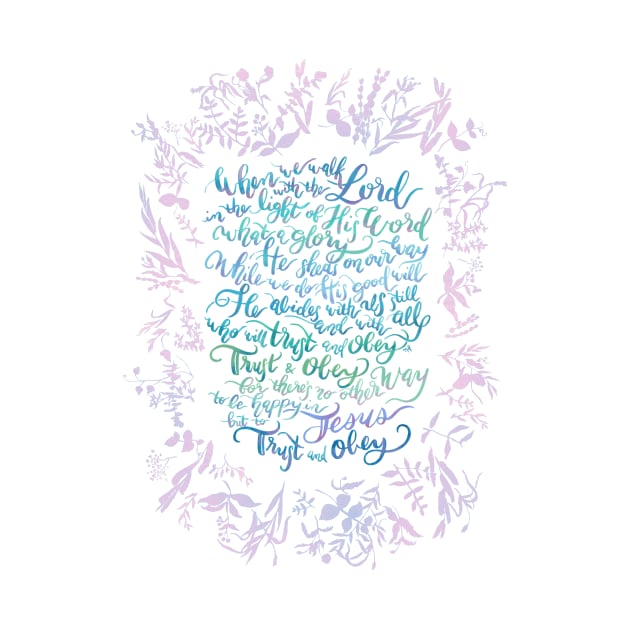 When we walk
with the Lord
in the light of His Word
what a glory
He sheds on our way
While we do His good will
He abides with us still
and with all
who will trust and obey
Trust & Obey
for there's no other way
to be happy in
Jesus
but to
Trust and Obey